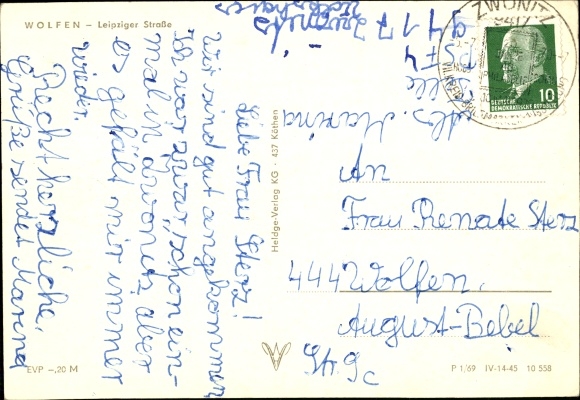 WOLFEN – Leipziger Straße
Liebe Frau Sterz!
Wir sind gut angekommen.
Ich war zwar schon ein-
mal in Zwönitz, aber
es gefällt mir immer
wieder.
Recht herzliche,
Grüße sendet Marina
Abs. Marina
9417
Zwönitz
ZWÖNITZ
9417
DEUTSCHE
DEMOKRATISCHE REPUBLIK
10
An
Frau Renate Sterz
444 Wolfen.
August-Bebel
Str 9c
Heldge-Verlag KG · 437 Köthen
EVP –,20 M
P 1/69 IV-14-45 10 558